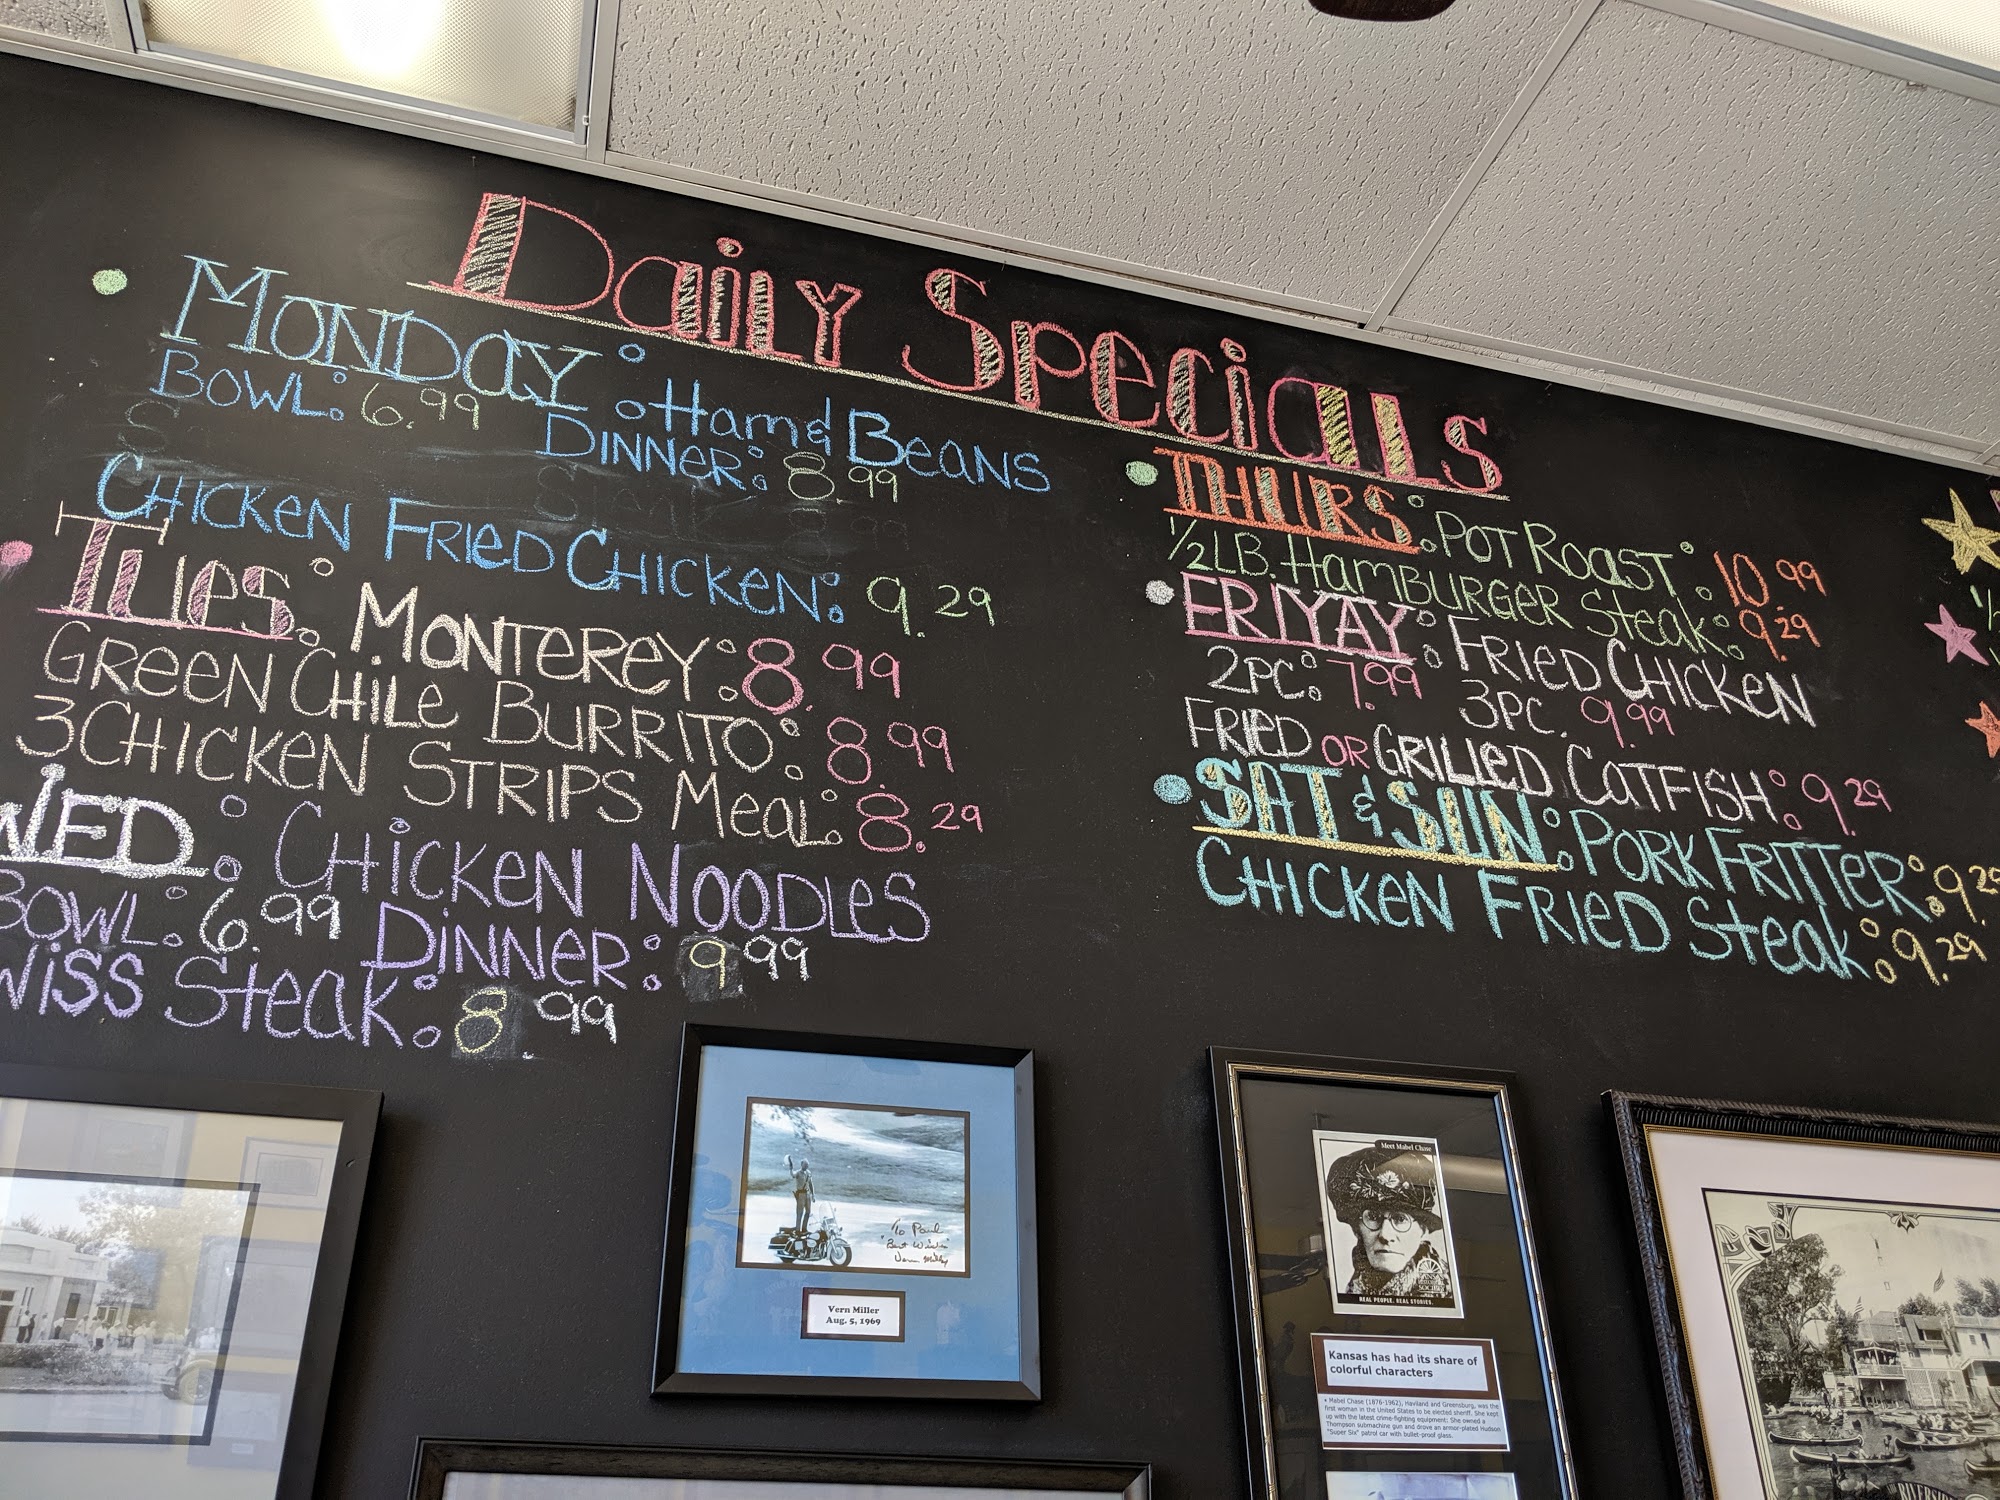 Daily Specials
Monday: Ham & Beans
Bowl: 6.99 Dinner: 8.99
Chicken Fried Chicken: 9.29
Tues: Monterey: 8.99
Green Chile Burrito: 8.99
3 Chicken Strips Meal: 8.29
Wed: Chicken Noodles
Bowl: 6.99 Dinner: 9.99
wiss Steak: 8.99
Thurs: Pot Roast: 10.99
1/2 lb. Hamburger Steak: 9.29
Friyay: Fried Chicken
2pc: 7.99 3pc. 9.99
Fried or Grilled Catfish: 9.29
Sat & Sun: Pork Fritter: 9.29
Chicken Fried Steak: 9.29
To Paul
"Best Wishes"
Vern Miller
Vern Miller
Aug. 5, 1969
Meet Mabel Chase
REAL PEOPLE. REAL STORIES.
Kansas has had its share of
colorful characters
• Mabel Chase (1876-1962), Haviland and Greensburg, was the
first woman in the United States to be elected sheriff. She kept
up with the latest crime-fighting equipment: She owned a
Thompson submachine gun and drove an armor-plated Hudson
"Super Six" patrol car with bullet-proof glass.